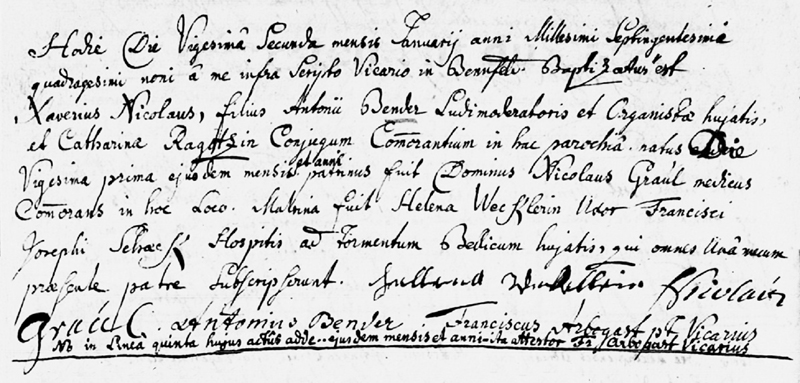 Hodie Die Vigesimâ Secundâ mensis Januarij anni Millesimi Septingentesimi
quadragesimi noni â me infra Scripto Vicario in Bennfeld. Baptizatus est
Xaverius Nicolaus, filius Antonii Bender Ludimoderatoris et Organistæ hujatis,
et Catharina Ragottzin Conjugum Com̄orantium in hac parochia. natus Die
Vigesima prima ejusdem mensis et anni patrinus fuit Dominus Nicolaus Graúl medicus
Com̄orans in hoc Loco. Matrina fuit Helena Wechslerin Uxor Francisci
Josephi Hospitis ad Tormentum Bellicum hujatis, qui omnes Unâ mecum
præsente patre Subscripserunt. Nicolaús
Graúl C. Antonius Bender Franciscus Arbogast pt. Vicarius
NB in Linea quinta hujus actûs adde.. ejusdem mensis et anni - ita attestor Fr. Arbogast Vicarius